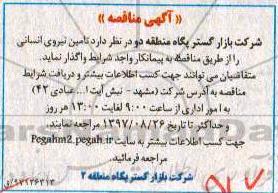 « آگهی مناقصه »
شرکت بازار گستر پگاه منطقه دو در نظر دارد تامین نیروی انسانی
را از طریق مناقصه به پیمانکار واجد شرایط واگذار نماید.
متقاضیان می توانند جهت کسب اطلاعات بیشتر و دریافت شرایط
مناقصه به آدرس شرکت (مشهد - نبش آیت ا... عبادی ۴۲)
به امور اداری از ساعت ۹:۰۰ لغایت ۱۳:۰۰ هر روز
و حداکثر تا تاریخ ۱۳۹۷/۰۸/۲۶ مراجعه نمایند.
جهت کسب اطلاعات بیشتر به سایت Pegahm2.pegah.ir
مراجعه فرمائید.
شرکت بازار گستر پگاه منطقه ۲
۹۷۱۲۶۳۱۳/ق